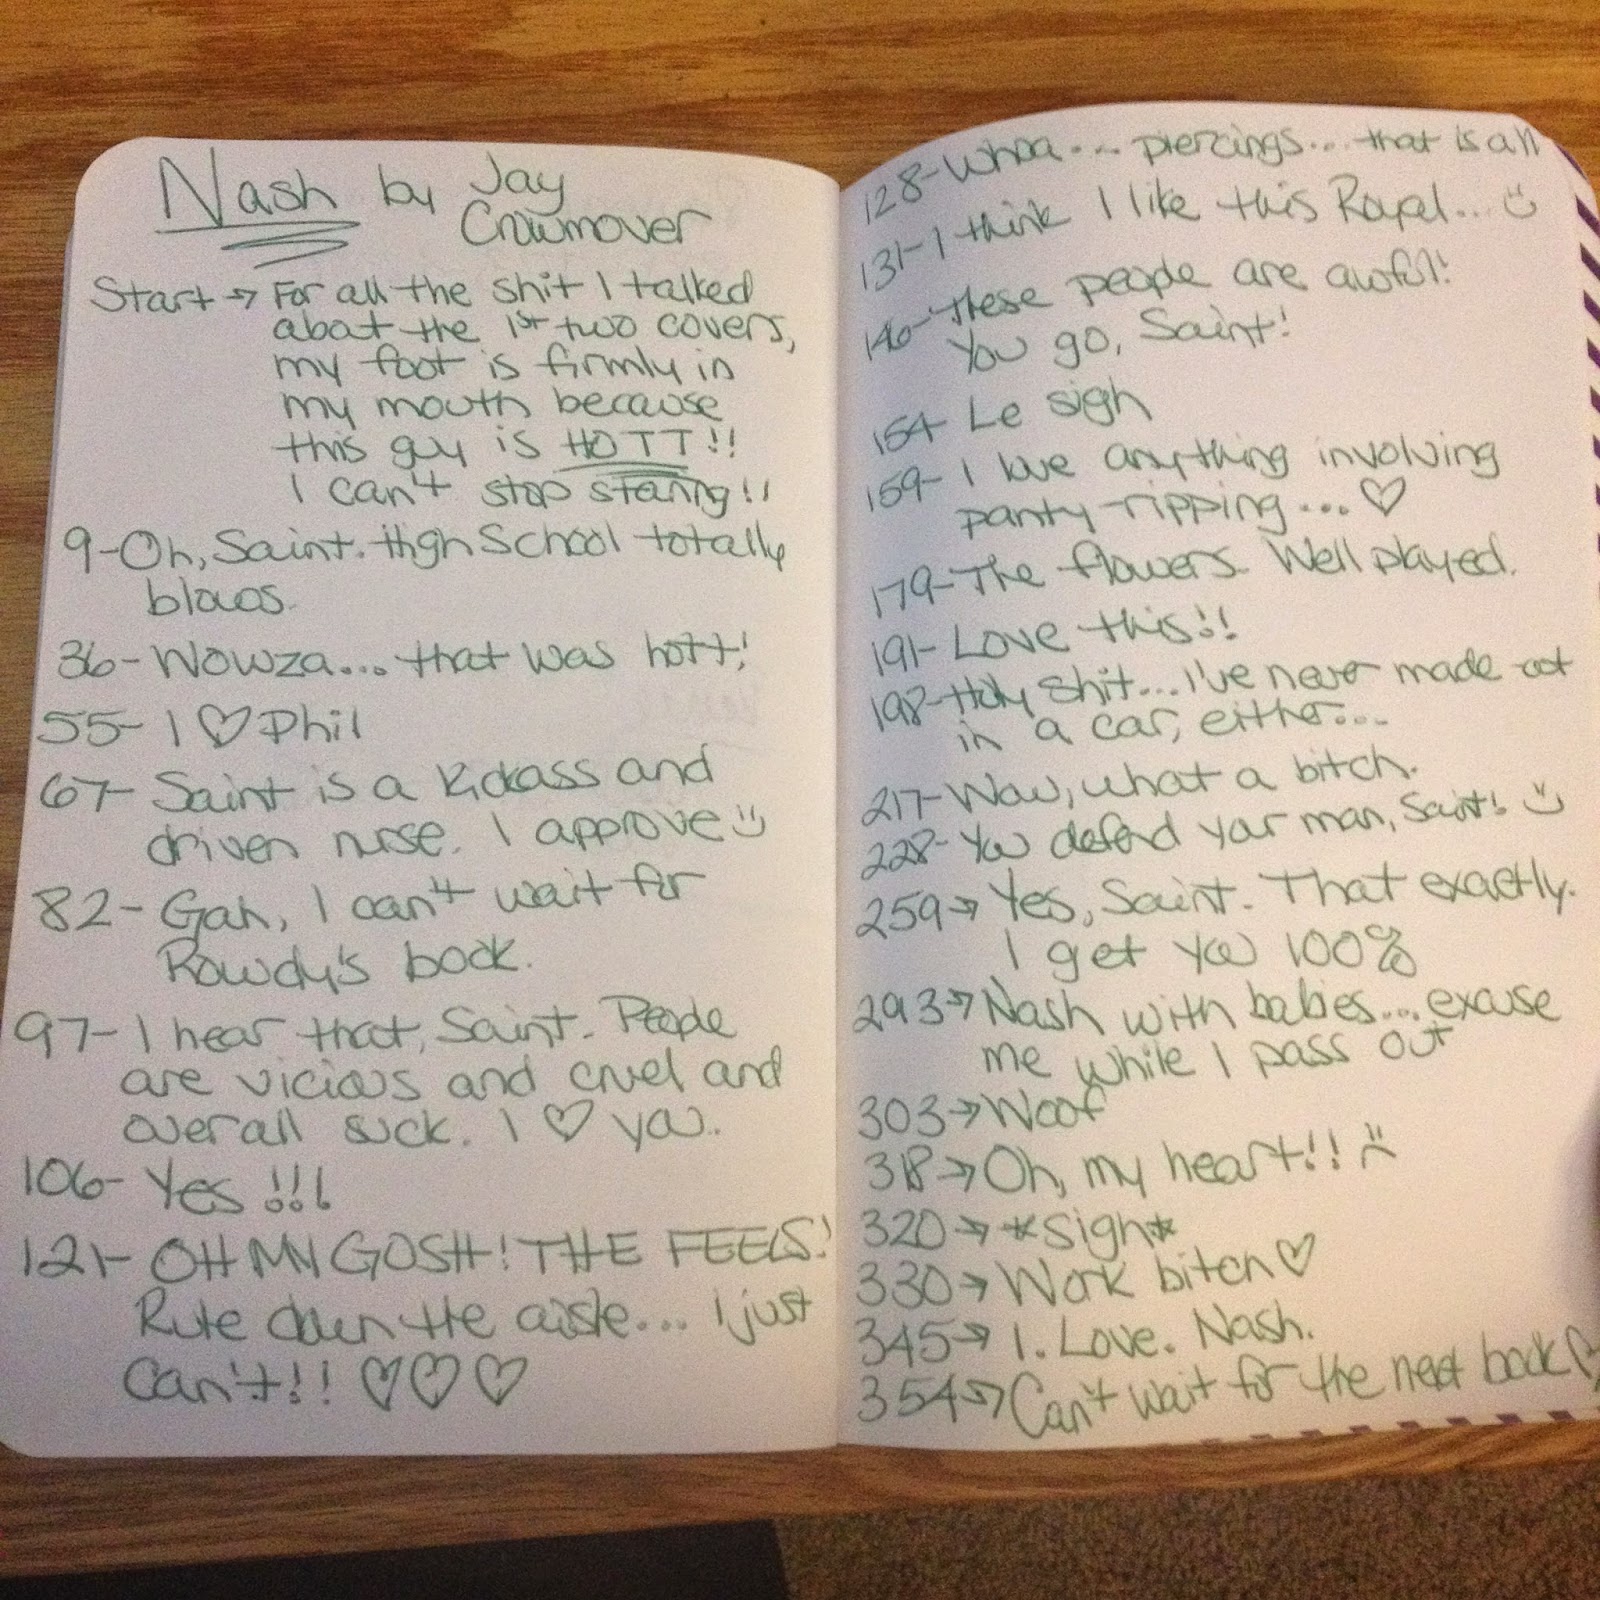 Nash by Jay
Crowmover
Start → For all the shit I talked
about the 1st two covers,
my foot is firmly in
my mouth because
this guy is HOTT!!
I can't stop staring!!
9-Oh, Saint. High School totally
blows.
36- Wowza... that was hott!
55- I ♡ Phil
67- Saint is a kickass and
driven nurse. I approve :)
82- Gah, I can't wait for
Rowdy's book.
97- I hear that, Saint. People
are vicious and cruel and
overall suck. I ♡ you.
106- Yes!!!
121- OH MY GOSH! THE FEELS!
Rule down the aisle... I just
Can't!! ♡♡♡
128-Whoa... piercings... that is all
131-I think I like this Royal... :)
146-These people are awful!
You go, Saint!
154- Le sigh
159- I love anything involving
panty-ripping... ♡
179-The flowers. Well played.
191-Love this!!
198-Holy shit... I've never made out
in a car, either...
217-Wow, what a bitch.
228-You defend your man, Saint! :)
259→ Yes, Saint. That exactly.
I get you 100%
293→Nash with babies... excuse
me while I pass out
303→Woof
318→Oh, my heart!! :(
320→ *sigh*
330→Work bitch ♡
345→ I. Love. Nash.
354→Can't wait for the next book ♡